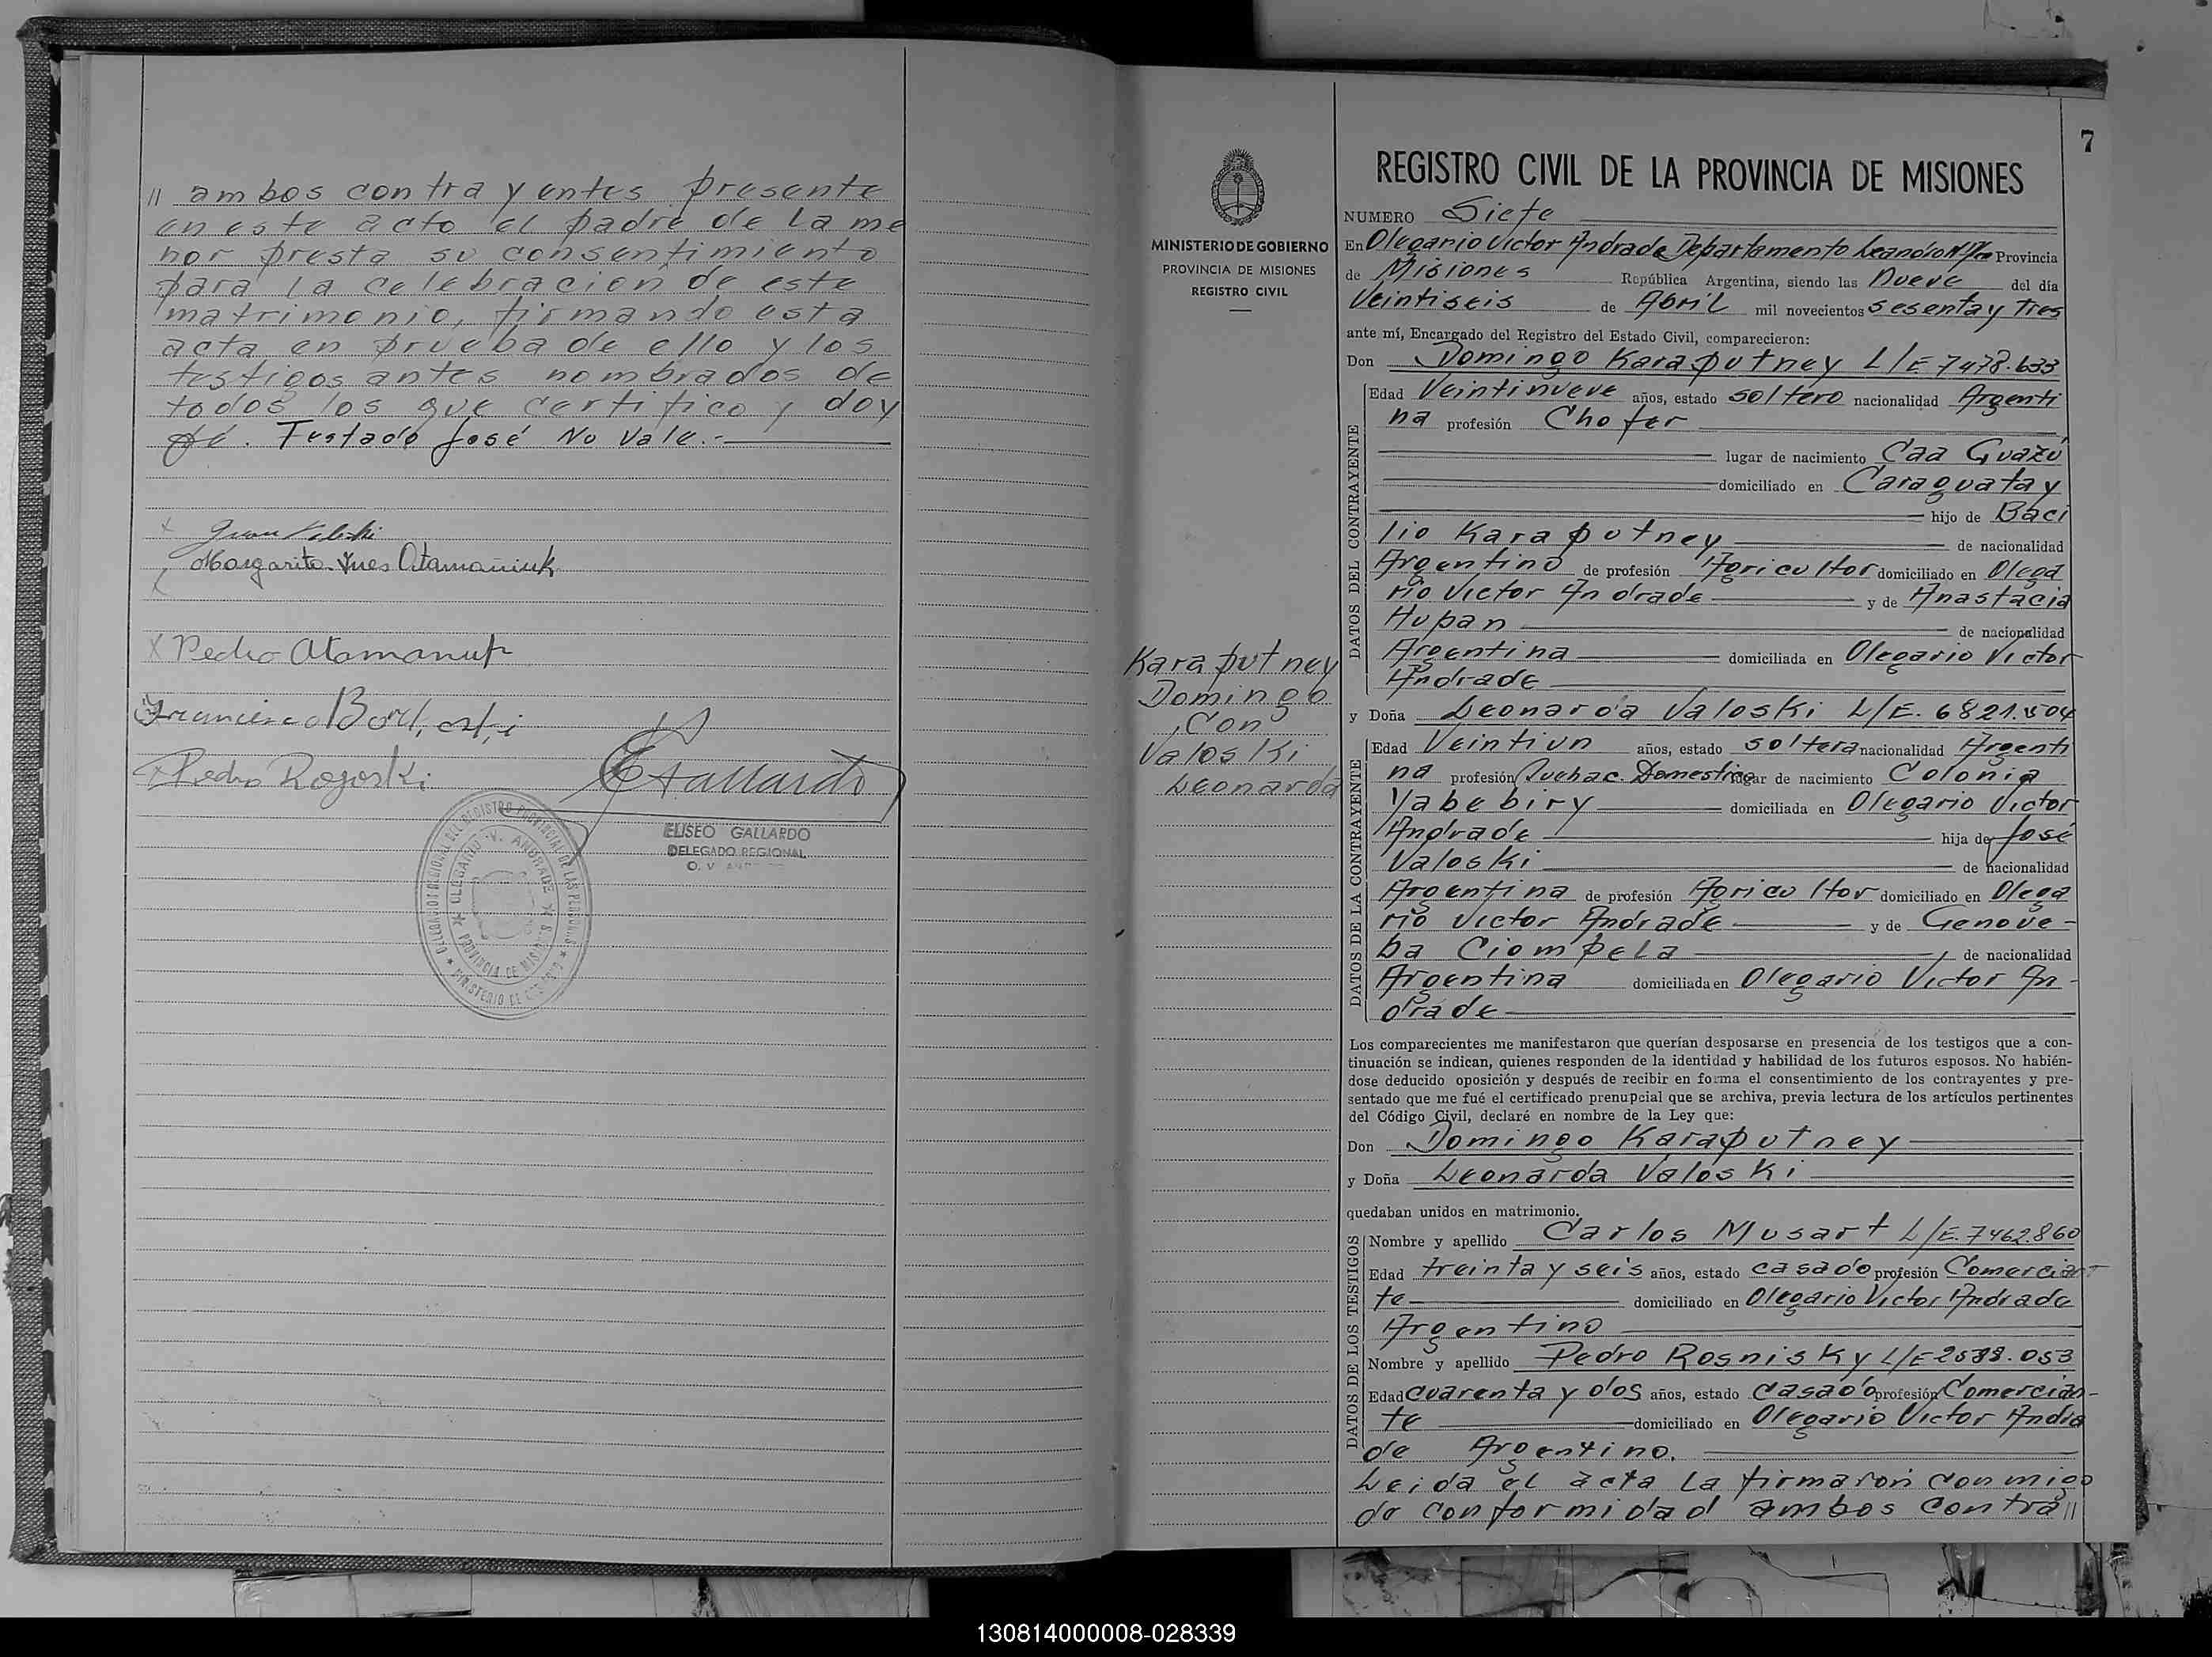 // ambos contrayentes presente
en este acto el padre de la me
nor presta su consentimiento
para la celebracion de este
matrimonio, firmando esta
acta en prueba de ello y los
testigos antes nombrados de
todos los que certifico y doy
fé. Testado José No Vale.-
Margarita Ynes Atamañiuk
Pedro Atamanup
Francisco
Pedro Rogoski
EGallardo
ELISEO GALLARDO
DELEGADO REGIONAL
O. V.
MINISTERIO DE GOBIERNO
PROVINCIA DE MISIONES
REGISTRO CIVIL
Karaputney
Domingo
Con
Valoski
Leonarda
7
REGISTRO CIVIL DE LA PROVINCIA DE MISIONES
NUMERO Siete
En Olegario Victor Andrade Departamento Leandro N. Provincia
de Misiones República Argentina, siendo las Nueve del día
Veintiseis de Abril mil novecientos sesenta y Tres
ante mí, Encargado del Registro del Estado Civil, comparecieron:
Don Domingo Karaputney L/E 7478.633
DATOS DEL CONTRAYENTE
Edad Veintinueve años, estado soltero nacionalidad Argenti
na profesión Chofer
lugar de nacimiento Caa Guazú
domiciliado en Caraguatay
hijo de Baci
lio Karaputney de nacionalidad
Argentino de profesión Agricultor domiciliado en Olega
rio Victor Andrade y de Anastacia
Hupan de nacionalidad
Argentina domiciliada en Olegario Victor
Andrade
y Doña Leonarda Valoski L/E. 6821.504
DATOS DE LA CONTRAYENTE
Edad Veintiun años, estado soltera nacionalidad Argenti
na profesión Quehac. Domestico lugar de nacimiento Colonia
Yabebiry domiciliada en Olegario Victor
Andrade hija de José
Valoski de nacionalidad
Argentina de profesión Agricultor domiciliado en Olega
rio Victor Andrade y de Genove-
ba Ciompela de nacionalidad
Argentina domiciliada en Olegario Victor An-
drade
Los comparecientes me manifestaron que querían desposarse en presencia de los testigos que a con-
tinuación se indican, quienes responden de la identidad y habilidad de los futuros esposos. No habién-
dose deducido oposición y después de recibir en forma el consentimiento de los contrayentes y pre-
sentado que me fué el certificado prenupcial que se archiva, previa lectura de los artículos pertinentes
del Código Civil, declaré en nombre de la Ley que:
Don Domingo Karaputney
y Doña Leonarda Valoski
quedaban unidos en matrimonio.
DATOS DE LOS TESTIGOS
Nombre y apellido Carlos Musart L/E. 7462.860
Edad treinta y seis años, estado casado profesión Comercian-
te domiciliado en Olegario Victor Andrade
Argentino
Nombre y apellido Pedro Rosnisky L/E 2588.053
Edad cuarenta y dos años, estado casado profesión Comercian-
te domiciliado en Olegario Victor Andra
de Argentino.
Leida el acta la firmaron conmigo
de conformidad ambos contra //
130814000008-028339